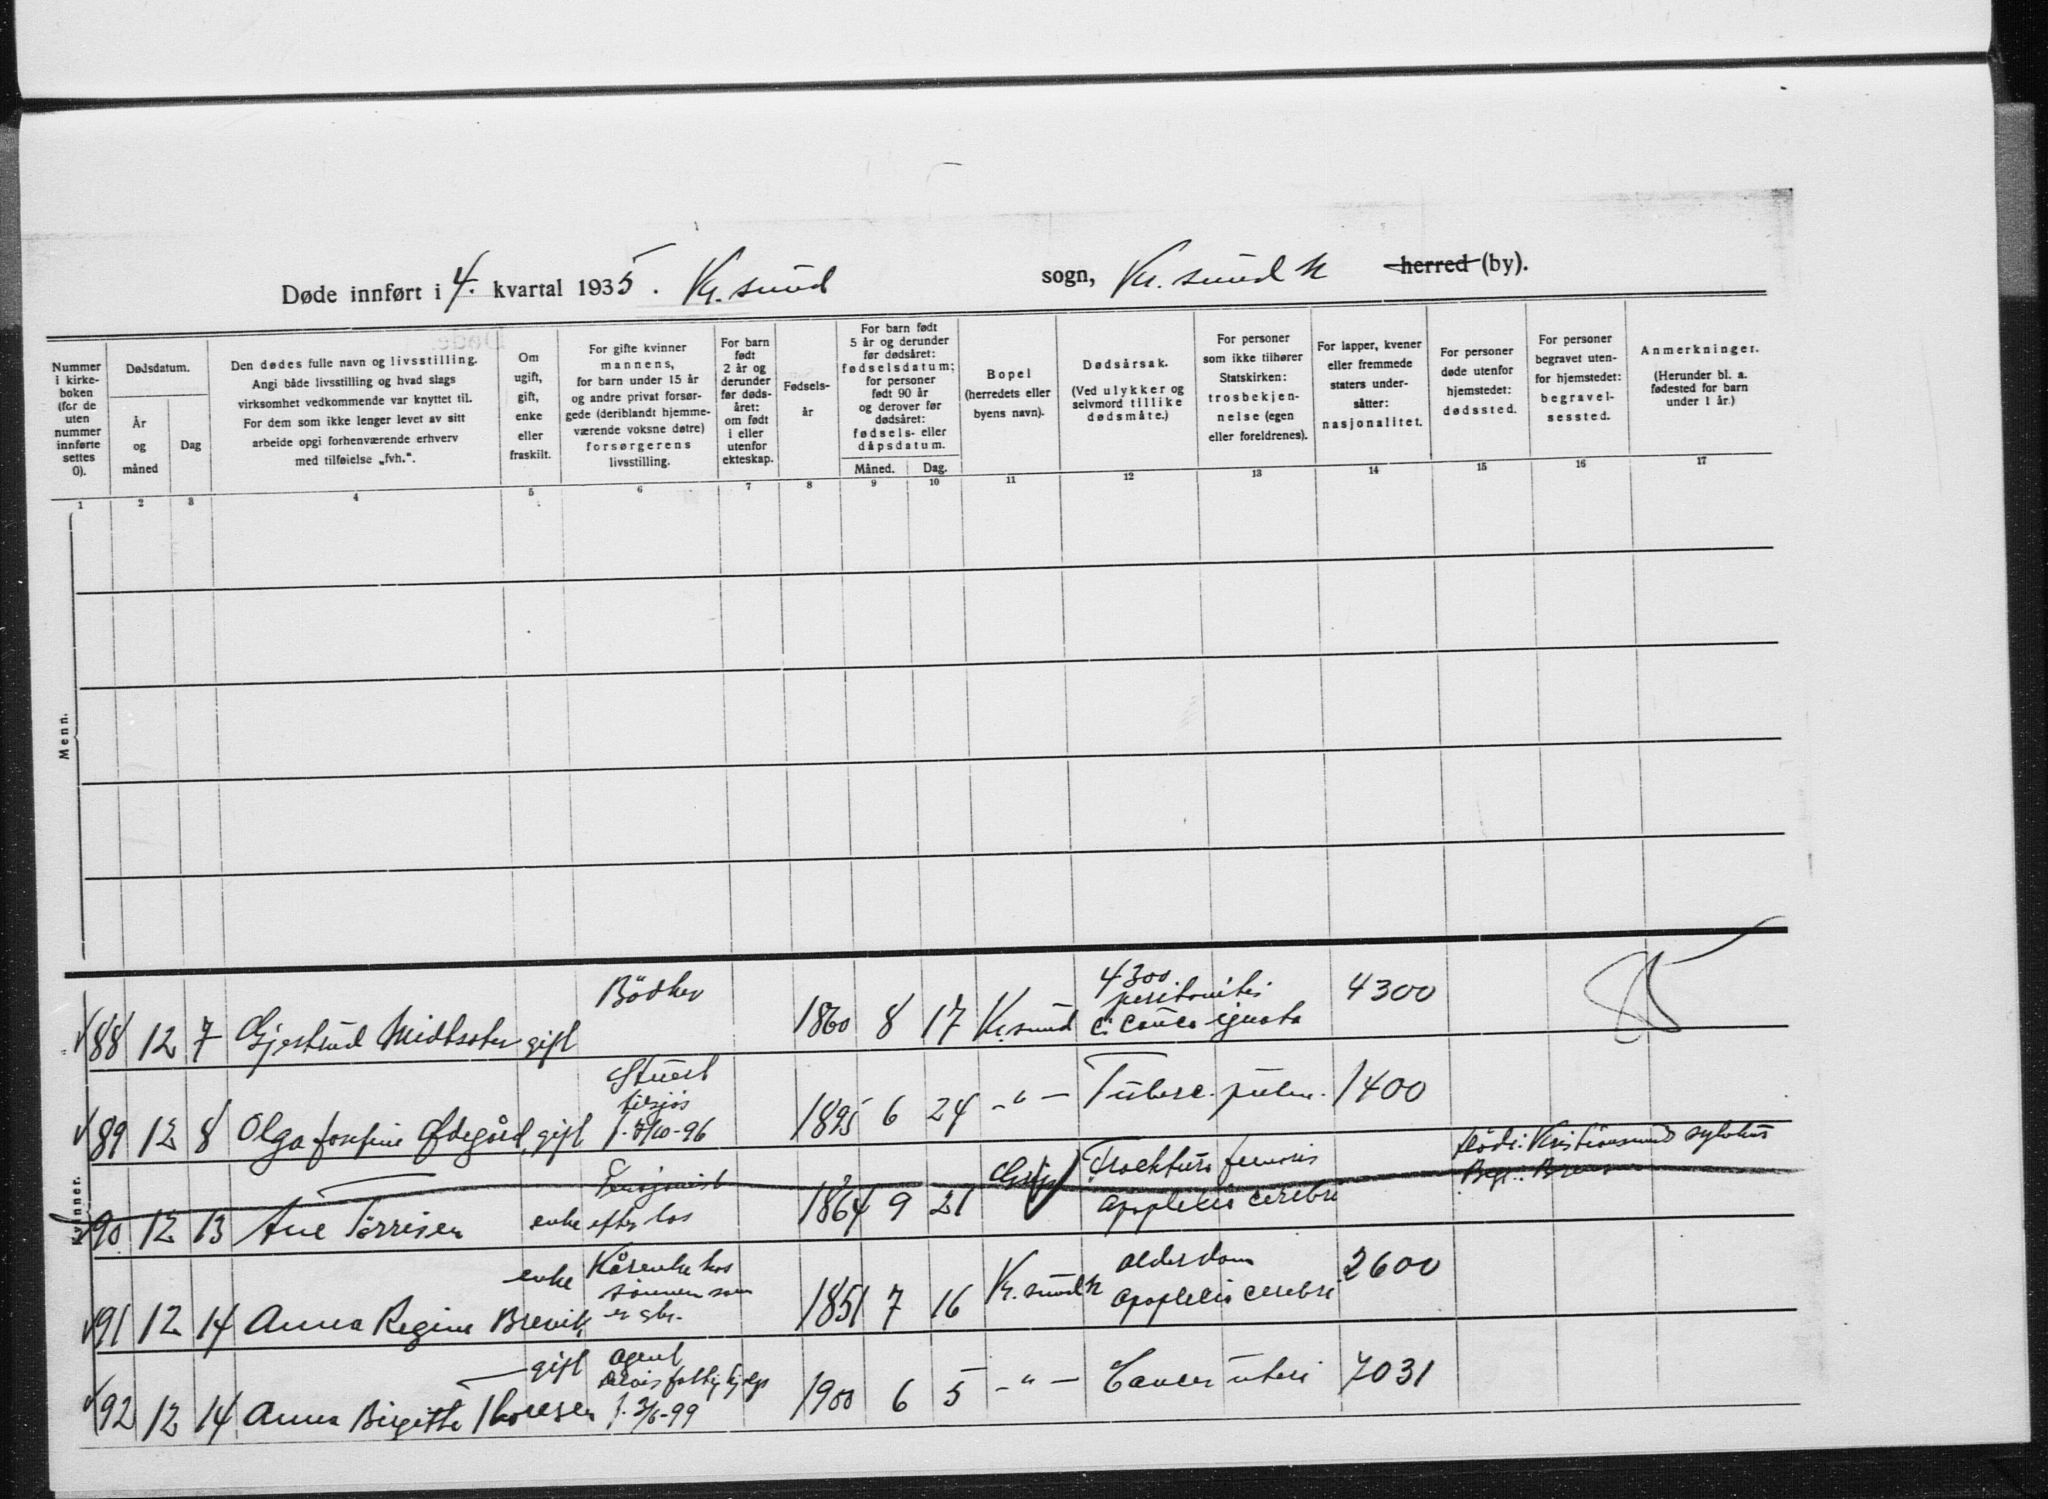 Døde innført i 4. kvartal 1935. Kr. sund sogn, Kr. sund N herred (by).
Nummer i kirke-boken (for de uten nummer innførte settes 0).
Dødsdatum.
År og måned
Dag
Den dødes fulle navn og livsstilling.
Angi både livsstilling og hvad slags
virksomhet vedkommende var knyttet til.
For dem som ikke lenger levet av sitt
arbeide opgi forhenværende erhverv
med tilføielse „fvh.".
Om ugift, gift, enke eller fraskilt.
For gifte kvinner
mannens,
for barn under 15 år
og andre privat forsør-
gede (deriblandt hjemme-
værende voksne døtre)
forsørgerens
livsstilling.
For barn født 2 år og derunder før døds-året: om født i eller utenfor ekteskap.
Fødsels-år
For barn født
5 år og derunder
før dødsåret:
fødselsdatum;
for personer
født 90 år
og derover før
dødsåret:
fødsels- eller
dåpsdatum.
Måned. Dag.
Bopel
(herredets eller
byens navn).
Dødsårsak.
(Ved ulykker og
selvmord tillike
dødsmåte.)
For personer
som ikke tilhører
Statskirken:
trosbekjen-
nelse (egen
eller foreldrenes).
For lapper, kvener
eller fremmede
staters under-
såtter:
nasjonalitet.
For personer
døde utenfor
hjemstedet:
dødssted.
For personer
begravet uten-
for hjemstedet:
begravel-
sessted.
Anmerkninger.
(Herunder bl. a.
fødested for barn
under 1 år.)
1 2 3 4 5 6 7 8 9 10 11 12 13 14 15 16 17
Menn.
Kvinner.
88 12 7 Gjertrud Midtsæter gift Bödker 1860 8 17 Kr.sund 4300 peritonitis c. causa ignota 4300
89 12 8 Olga Josefine Ødegård, gift Stuert tilsjøs f. 7/10-96 1895 6 24 -"- Tuberc. pulm. 1400
90 12 13 Ane Tørrisen enke efter los 1864 9 21 Grip Fracktura femoris Apoplexia cerebri Død i: Kristiansund sykehus
91 12 14 Anna Regine Brevik enke Kårenke hos sønnen som er gbr. 1851 7 16 Kr. sund N Alderdom Apoplexia cerebri 2600
92 12 14 Anna Birgitte Thoresen gift Agent f. 3/6-99 1900 6 5 -"- Cancer uteri 7031